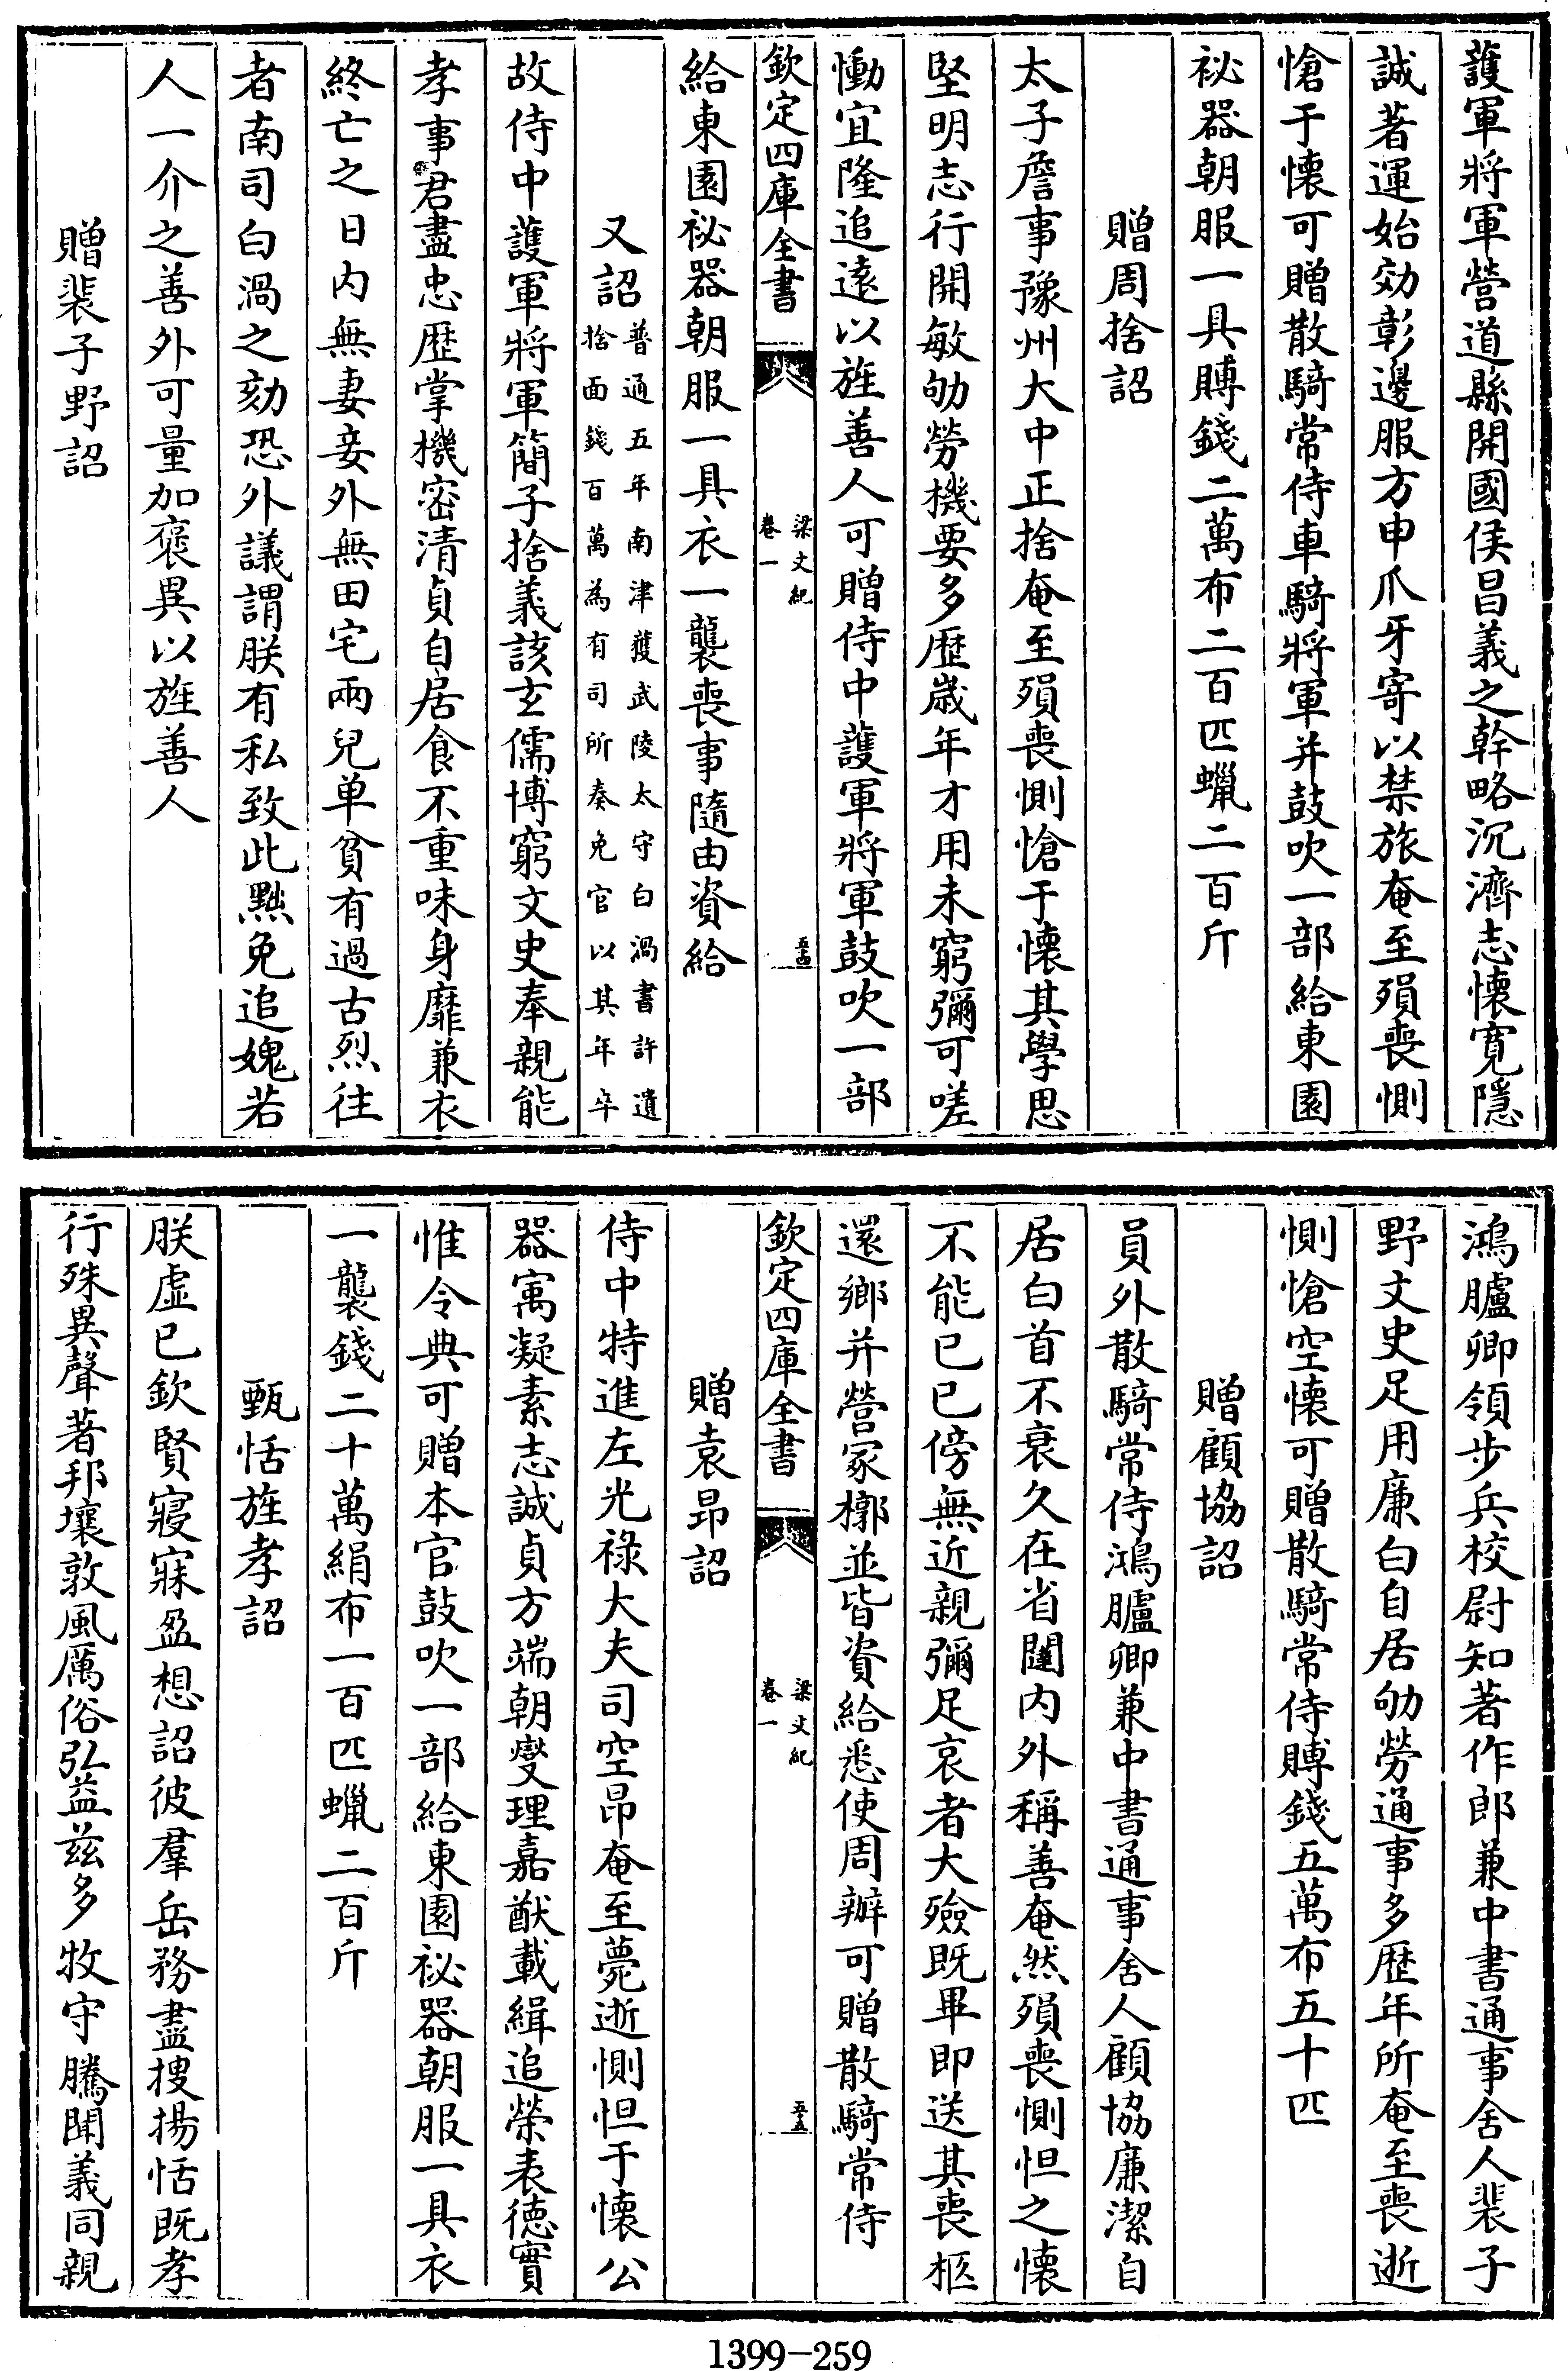 護軍將軍營道縣開國侯昌義之幹略沉濟志懷寛隱
誠著運始効彰邊服方申爪牙寄以禁旅奄至殞喪惻
愴于懷可贈散騎常侍車騎將軍并鼓吹一部給東園
祕器朝服一具賻錢二萬布二百匹蠟二百斤
贈周捨詔
太子詹事豫州大中正捨奄至殞喪惻愴于懷其學思
堅明志行開敏劬勞機要多歴歳年才用未窮彌可嗟
慟宜隆追遠以旌善人可贈侍中護軍將軍鼓吹一部
欽定四庫全書
梁文紀
卷一
五十四
給東園祕器朝服一具衣一襲喪事隨由資給
又詔
普通五年南津獲武陵太守白渦書許遺
捨面錢百萬為有司所奏免官以其年卒
故侍中護軍將軍簡子捨義該玄儒博窮文史奉親能
孝事君盡忠歴掌機密清貞自居食不重味身靡兼衣
終亡之日内無妻妾外無田宅兩兒单貧有過古烈往
者南司白渦之劾恐外議謂朕有私致此黜免追媿若
人一介之善外可量加襃異以旌善人
贈裴子野詔
鴻臚卿領步兵校尉知著作郎兼中書通事舍人裴子
野文史足用廉白自居劬勞通事多歴年所奄至喪逝
惻愴空懷可贈散騎常侍賻錢五萬布五十匹
贈顧協詔
員外散騎常侍鴻臚卿兼中書通事舍人顧協廉潔自
居白首不衰久在省闥内外稱善奄然殞喪惻怛之懷
不能已已傍無近親彌足哀者大殮既畢即送其喪柩
還鄉并營冢槨並皆資給悉使周辦可贈散騎常侍
欽定四庫全書
梁文紀
卷一
五十五
贈袁昻詔
侍中特進左光祿大夫司空昂奄至薨逝惻怛于懷公
器寓凝素志誠貞方端朝燮理嘉猷載緝追榮表德實
惟令典可贈本官鼓吹一部給東園祕器朝服一具衣
一襲錢二十萬絹布一百匹蠟二百斤
甄恬旌孝詔
朕虛已欽賢寢寐盈想詔彼羣岳務盡搜揚恬既孝
行殊異聲著邦壤敦風厲俗弘益兹多牧守騰聞義同親
1399-259